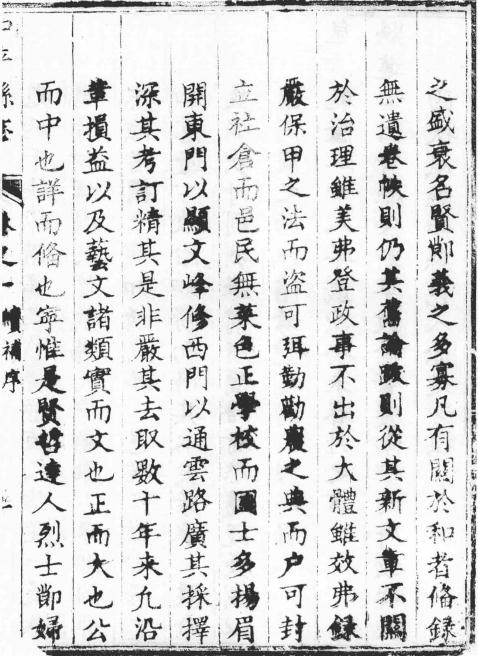 之盛衰名賢節義之多寡凡有關於和者俻錄
無遺卷帙則仍其舊論跋則從其新文章不關
於治理雖美弗登政事不出於大體雖效弗錄
嚴保甲之法而盗可弭勤勸農之典而户可封
立社倉而邑民無菜色正學校而國士多揚眉
開東門以顯文峰修西門以通雲路廣其採擇
深其考訂精其是非嚴其去取數十年來凢沿
革損益以及藝文諸類實而文也正而大也公
而中也詳而俻也寧惟是賢哲達人烈士節婦
縣志 卷之一 續補序